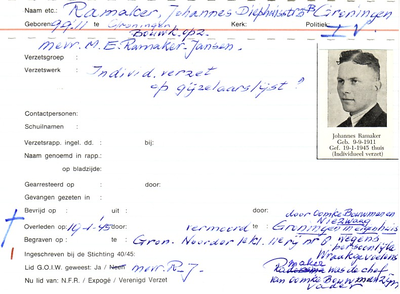 Naam etc.: Ramaker, Johannes Diephuisstr. 5B Groningen
Geboren: 9.9.11 te Groningen Kerk: Politiek:
Bouwk. opz.
mevr. M. E. Ramaker-Jansen.
Verzetsgroep :
Verzetswerk : Individ. verzet
op gijzelaarslijst?
Johannes Ramaker
Geb. 9-9-1911
Gef. 19-1-1945 thuis
(Individueel verzet)
Contactpersonen:
Schuilnamen :
Verzetsrapp. ingel. dd. : bij:
Naam genoemd in rapp.:
op bladzijde:
Gearresteerd op : door:
Gevangen gezeten in :
Bevrijd op : uit : door: door Oomke Bouwman en
Nieswaag
Overleden op: 19-1-'45 door: vermoord te: Groningen
Begraven op : te: Gron. Noorder h.kl. 11e rij no 6 wegens
persoonlijke
Wraakgevoelens
Ingeschreven bij de Stichting 40/45:
Lid G.O.I.W. geweest: Ja / Neen mevr. R-J.
Ramaker was de chef
van Oomke Bouwman
Nu lid van: N.F.R. / Expogé / Verenigd Verzet